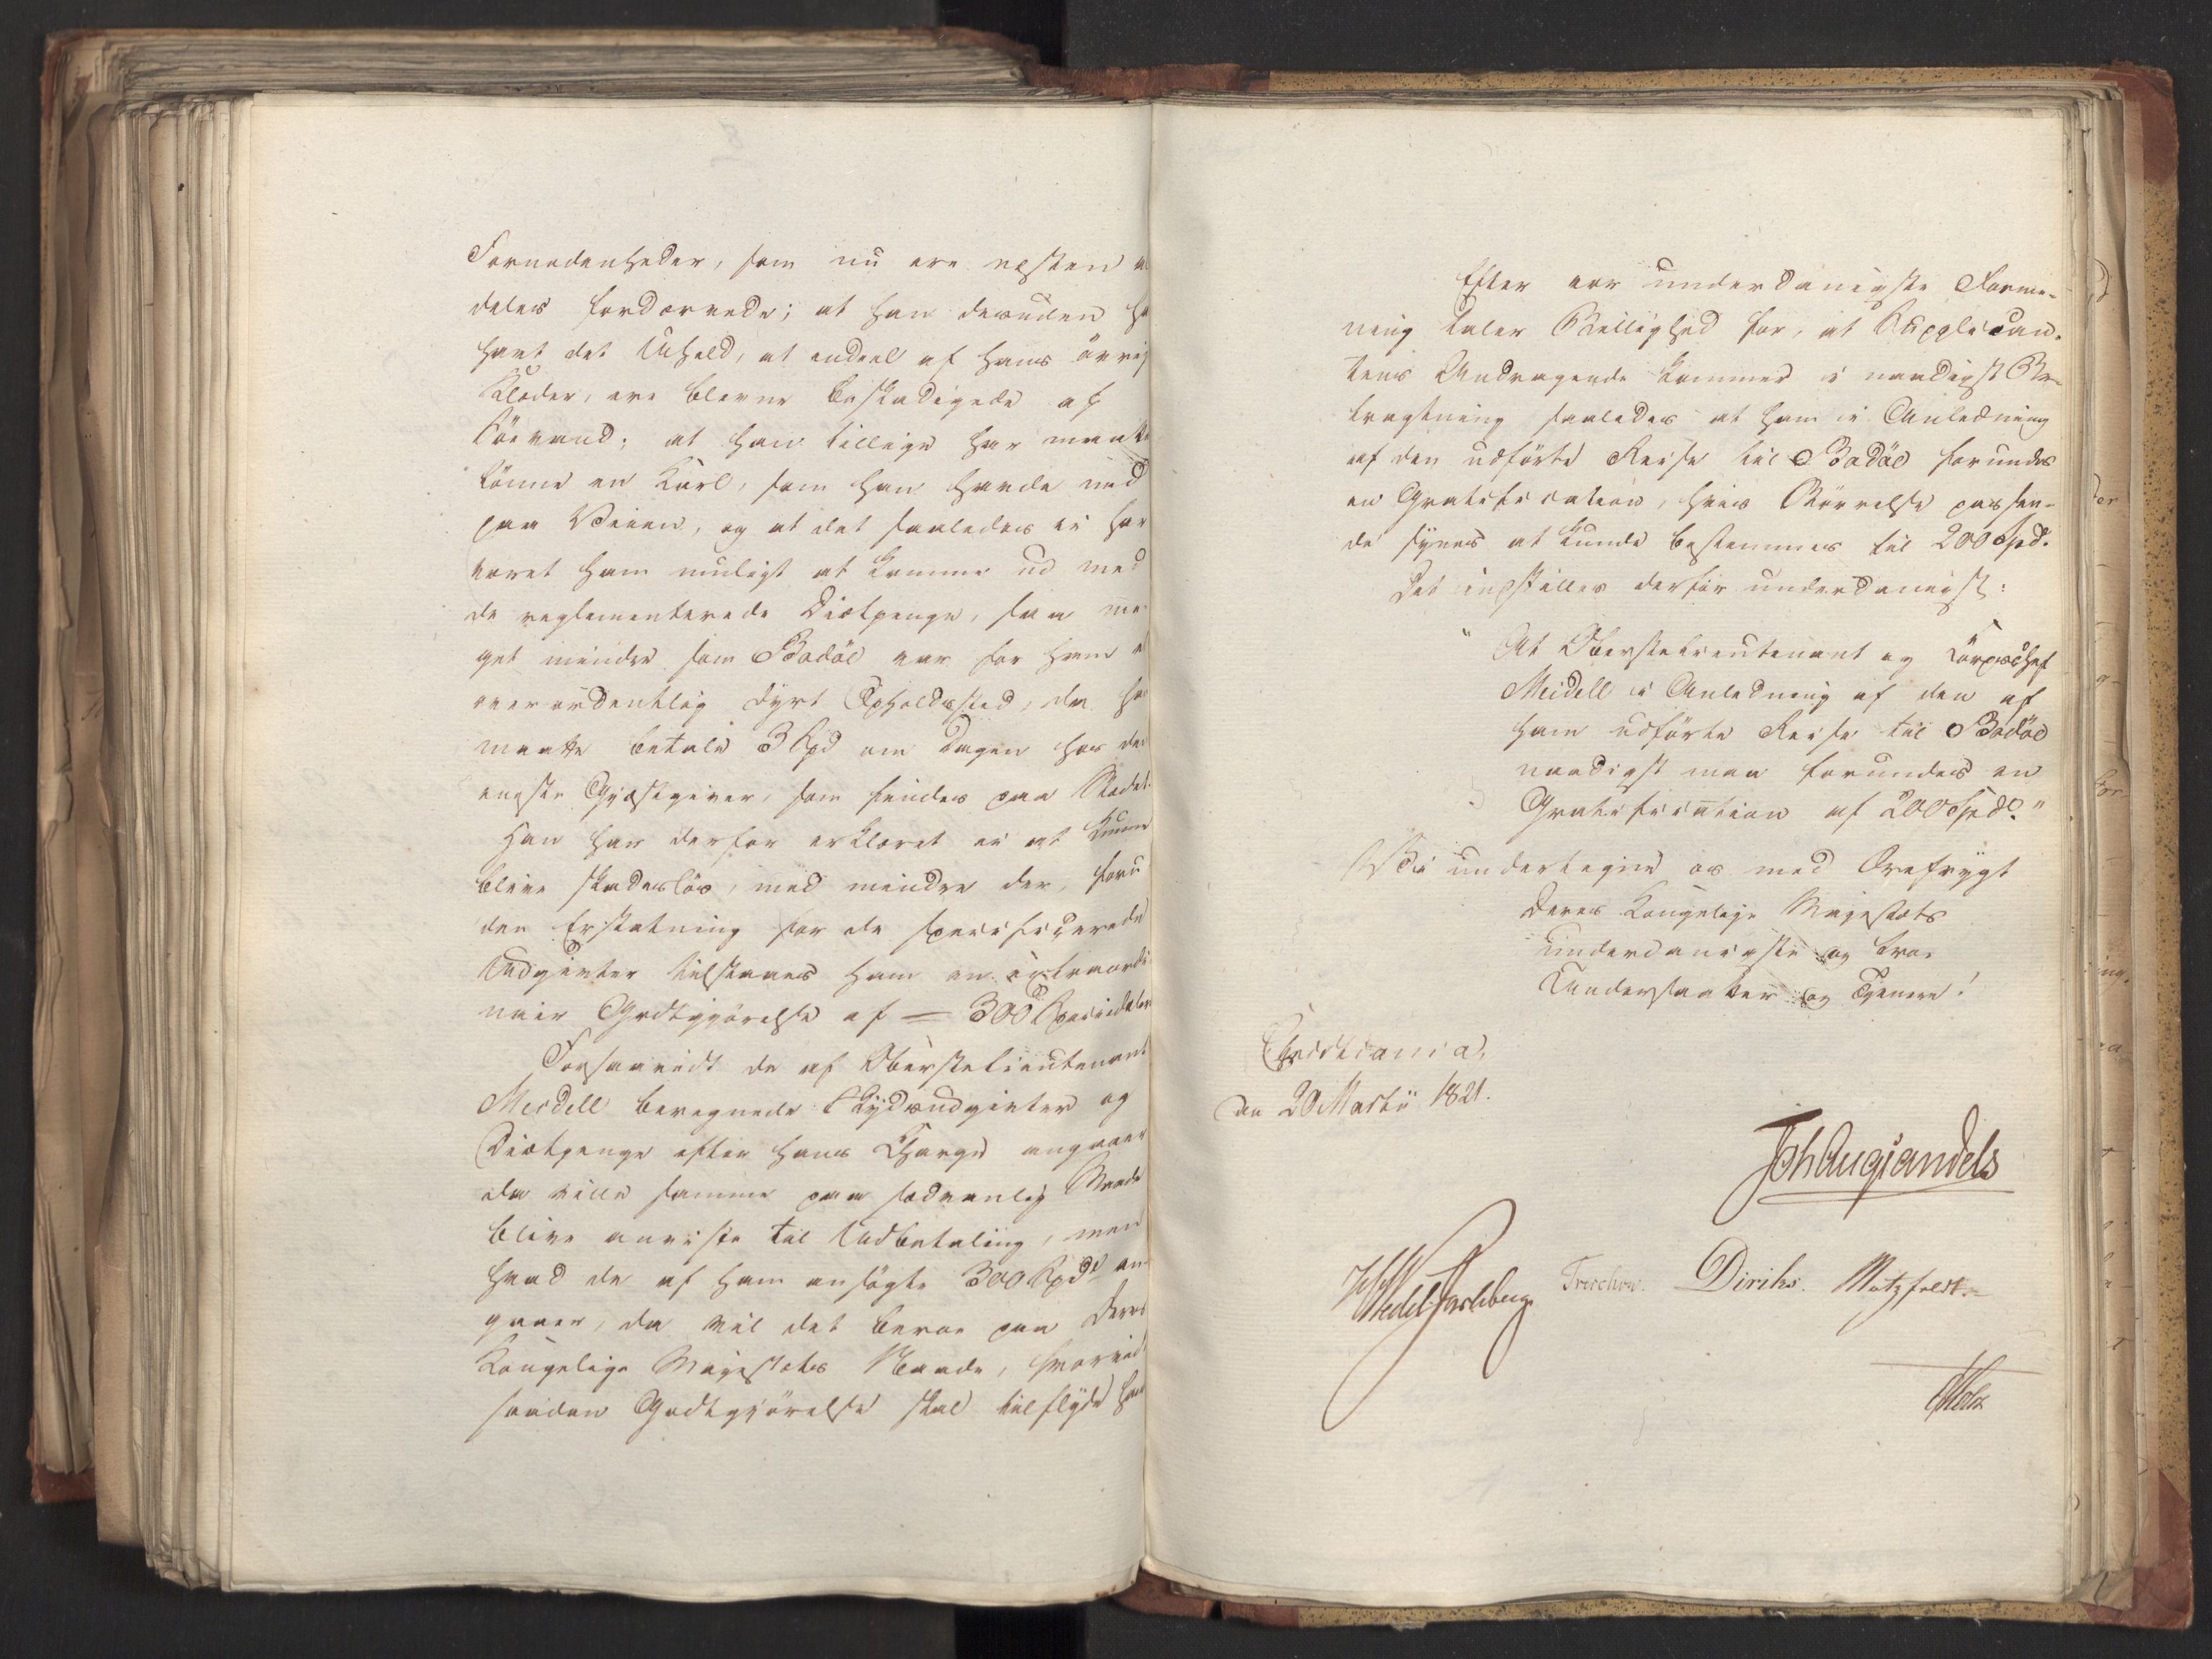 Fornødenheder, som nu ere næsten
deles fordærvede; at han desuden
havt det Uheld, at endeel af hans övrig
Klæder, ere blevne beskadigede af
Söevand; at han tillige har maatte
lönne en Karl, som han havde med
paa Veien, og at det saaledes ei har
været ham muligt at komme ud med
de reglementerede Diætpenge, saa me-
get mindre som Bodöe var for ham
overordentlig dyrt Opholdssted, da han
maatte betale 3 Spd om Dagen hos den
eneste Gjæstgiver, som findes paa Stedet.
Han har derfor erklæret ei at kunne
blive skadeslös, med mindre der, foru
den Erstatning for de specificerede
Udgivter tilstaaes ham en extraordi-
nair Godtgjörelse af = 300 Speciedaler
Forsaavidt de af Oberstelieutenant
Meidell beregnede Skydsudgivter og
Diætpenge efter hans Charge angaaer
da ville samme paa sædvanlig Maade
blive anviiste til Udbetaling, men
hvad de af ham ansögte 300 Spd an-
gaaer, da vil det beroe paa Deres
Kongelige Majestæts Naade, hvorvidt
saadan Godtgjörelse skal tilflyde ham
Efter vor underdanigste Forme-
ning taler Billighed for, at Supplican-
tens Andragende kommer i naadigst Be-
tragtning saaledes at ham i Anledning
af den udförte Reise til Bodöe forundes
en Gratification, hvis Störrelse passen-
de synes at kunde bestemmes til 200 Spd.
Det indstilles derfor underdanigst:
"At Oberstelieutenant og Corpschef
Meidell i Anledning af den af
ham udförte Reise til Bodöe
naadigst maa forundes en
Gratification af 200 Spd."
Vi undertegne os med Ærefrygt
Deres Kongelige Majestæts
underdanigste og troe
Undersaatter og Tjenere!
Christiania,
den 20 Martii 1821.
Joh Aug Sandels
Wedel Jarlsberg. Treschow. Diriks. Motzfeldt.